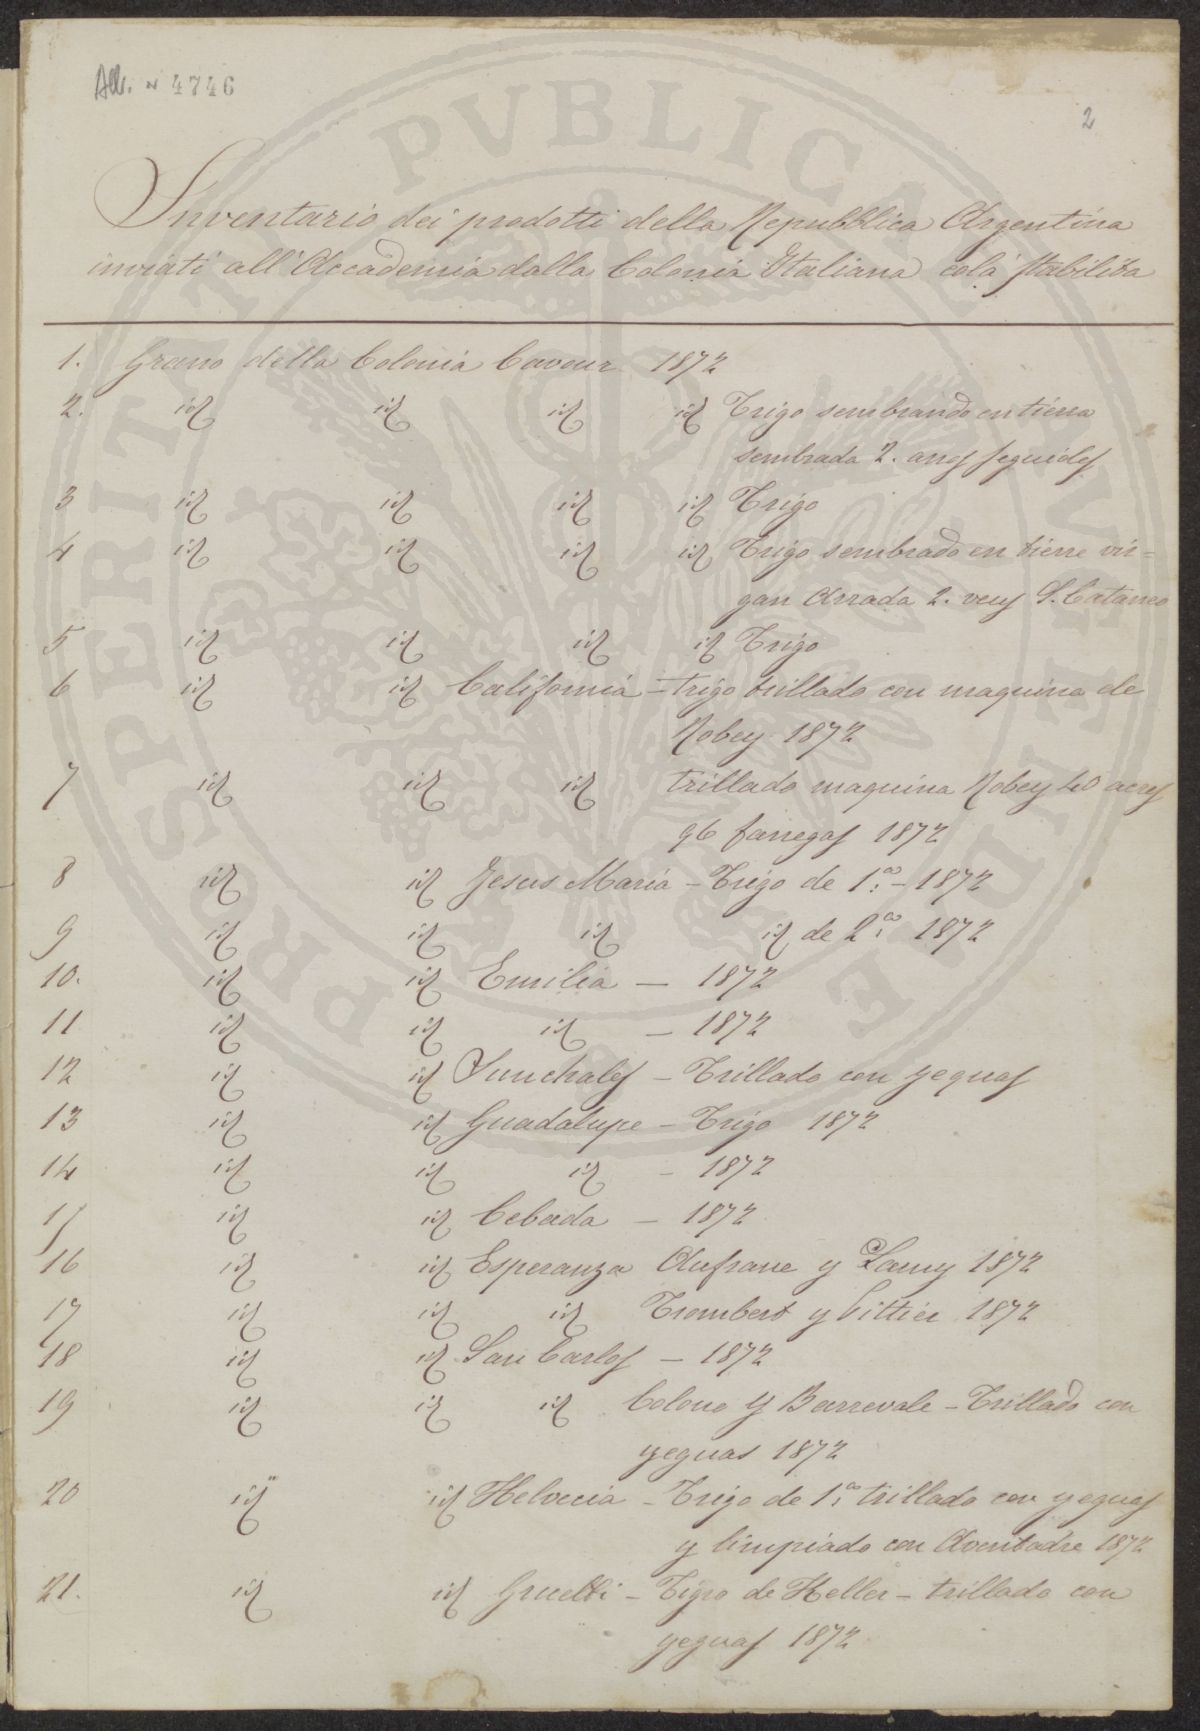 All. N 4746
2
Inventario dei prodotti della Repubblica Argentina
inviati all'Accademia dalla Colonia Italiana colà stabilita
1. Grano della Colonia Cavour 1872
2. id id id id Trigo sembrando en tierra
sembrada 2. anos seguidos
3 id id id id Trigo
4 id id id id Trigo sembrado en tierre vir=
gan Arrada 2. veces S. Cataneo
5 id id id id Trigo
6 id id California - trigo trillado con maquina de
Robey 1872
7 id id id trillado maquina Robey 40 acres
96 fanegas 1872
8 id id Jesus Maria - Trigo de 1.a - 1872
9 id id id id de 2.a 1872
10. id id Emilia — 1872
11 id id id — 1872
12 id id Sunchales - Trillado con yeguas
13 id id Guadalupe - Trigo 1872
14 id id id - 1872
15 id id Cebada — 1872
16 id id Esperanza Aufrane y Lamy 1872
17 id id id Trombert y Pittier 1872
18 id id San Carlos — 1872
19 id id id Colono Y Barrevale - Trillado con
yeguas 1872
20 id id Helvecia - Trigo de 1.a trillado con yeguas
y limpiado con Aventadre 1872
21. id id Grcelli - Tigro de Heller - trillado con
yeguas 1872
PROSPERITATI PVBLICAE AVGENDAE